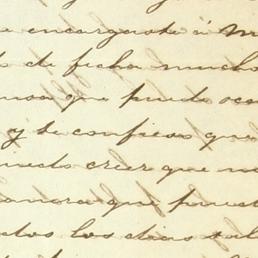 encargaste á M
de fecha mucho
que puede oca
y te confieso que
puedo creer que n
que puede
todos los dias sal